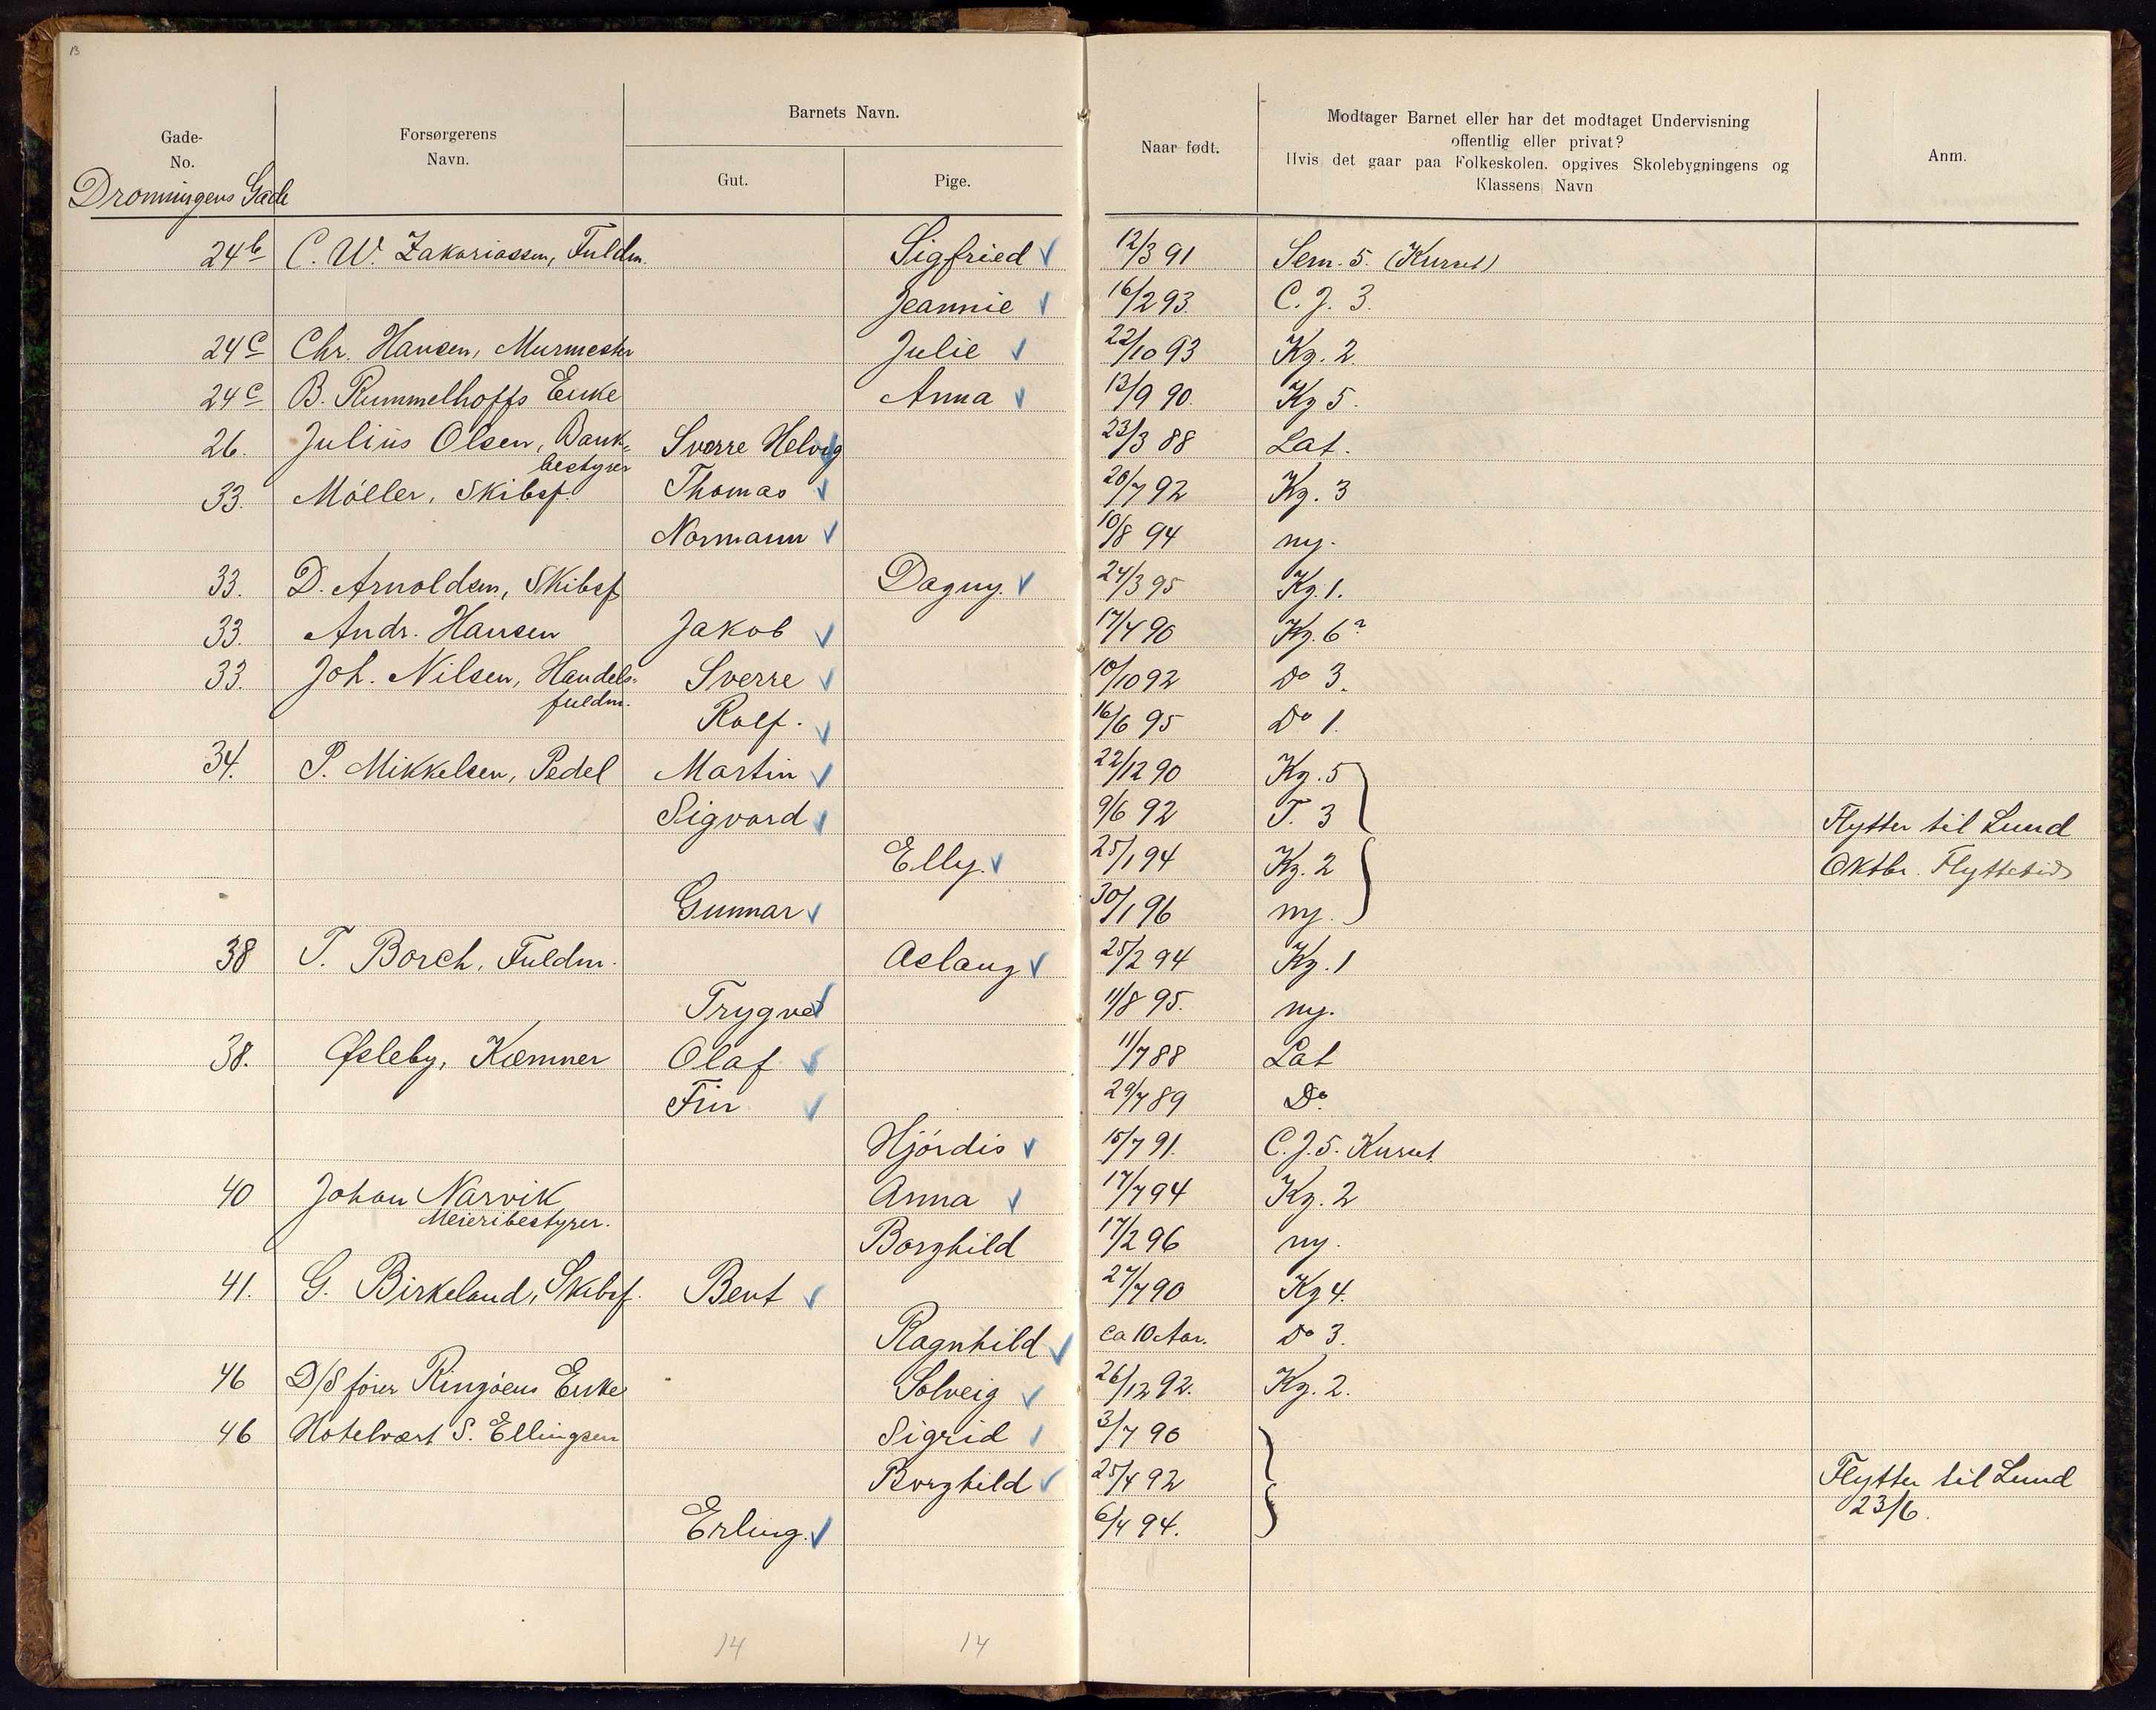 13
Gade-
No.
Forsørgerens
Navn.
Barnets Navn.
Gut.
Pige.
Naar født.
Modtager Barnet eller har det modtaget Undervisning
offentlig eller privat?
Hvis det gaar paa Folkeskolen, opgives Skolebygningens og
Klassens Navn
Anm.
Dronningens Gade
24b C. W. Zakariassen, Fuldm. Sigfried 12/3 91 Sem. 5. (Kurset)
Jeannie 16/2 93. C. J. 3.
24c Chr. Hansen, Murmester Julie 22/10 93 Kg. 2.
24c B. Rummelhoffs Enke Anna 13/9 90. Kg 5.
26. Julius Olsen, Bank- Sverre Helvig 23/3 88 Lat.
bestyrer
33. Möller, Skibsf. Thomas 20/7 92 Kg. 3
Normann 10/8 94 ny.
33. D. Arnoldsen, Skibsf Dagny. 24/3 95 Kg. 1.
33. Andr. Hansen Jakob 17/4 90 Kg. 6?
33. Joh. Nilsen, Handels- Sverre 10/10 92 Do 3.
fuldm.
Rolf. 16/6 95 Do 1.
34. P. Mikkelsen, Pedel Martin 22/12 90 Kg. 5
Sigvard 9/6 92 T. 3 Flytter til Lund
Elly. 25/1 94 Kg. 2 Oktbr. Flyttetid
Gunnar 30/1 96 ny.
38 T. Borch, Fuldm. Aslaug 25/2 94 Kg. 1
Trygve 11/8 95. ny.
38. Øsleby, Kæmner Olaf 11/7 88 Lat
Fin 29/7 89 Do.
Hjördis 15/7 91. C. J. 5. Kurset
40 Johan Narvik Anna 17/7 94 Kg. 2
Meieribestyrer.
Borghild 17/2 96 ny.
41. G. Birkeland, Skibsf. Bent 27/7 90 Kg 4.
Ragnhild ca 10 Aar. Do 3.
46 D/S fører Ringöens Enke Solveig 26/12 92. Kg. 2.
46 Hotelvært S. Ellingsen Sigrid 3/7 90
Borghild 25/4 92 Flytter til Lund
23/6.
Erling. 6/4 94.
14 14